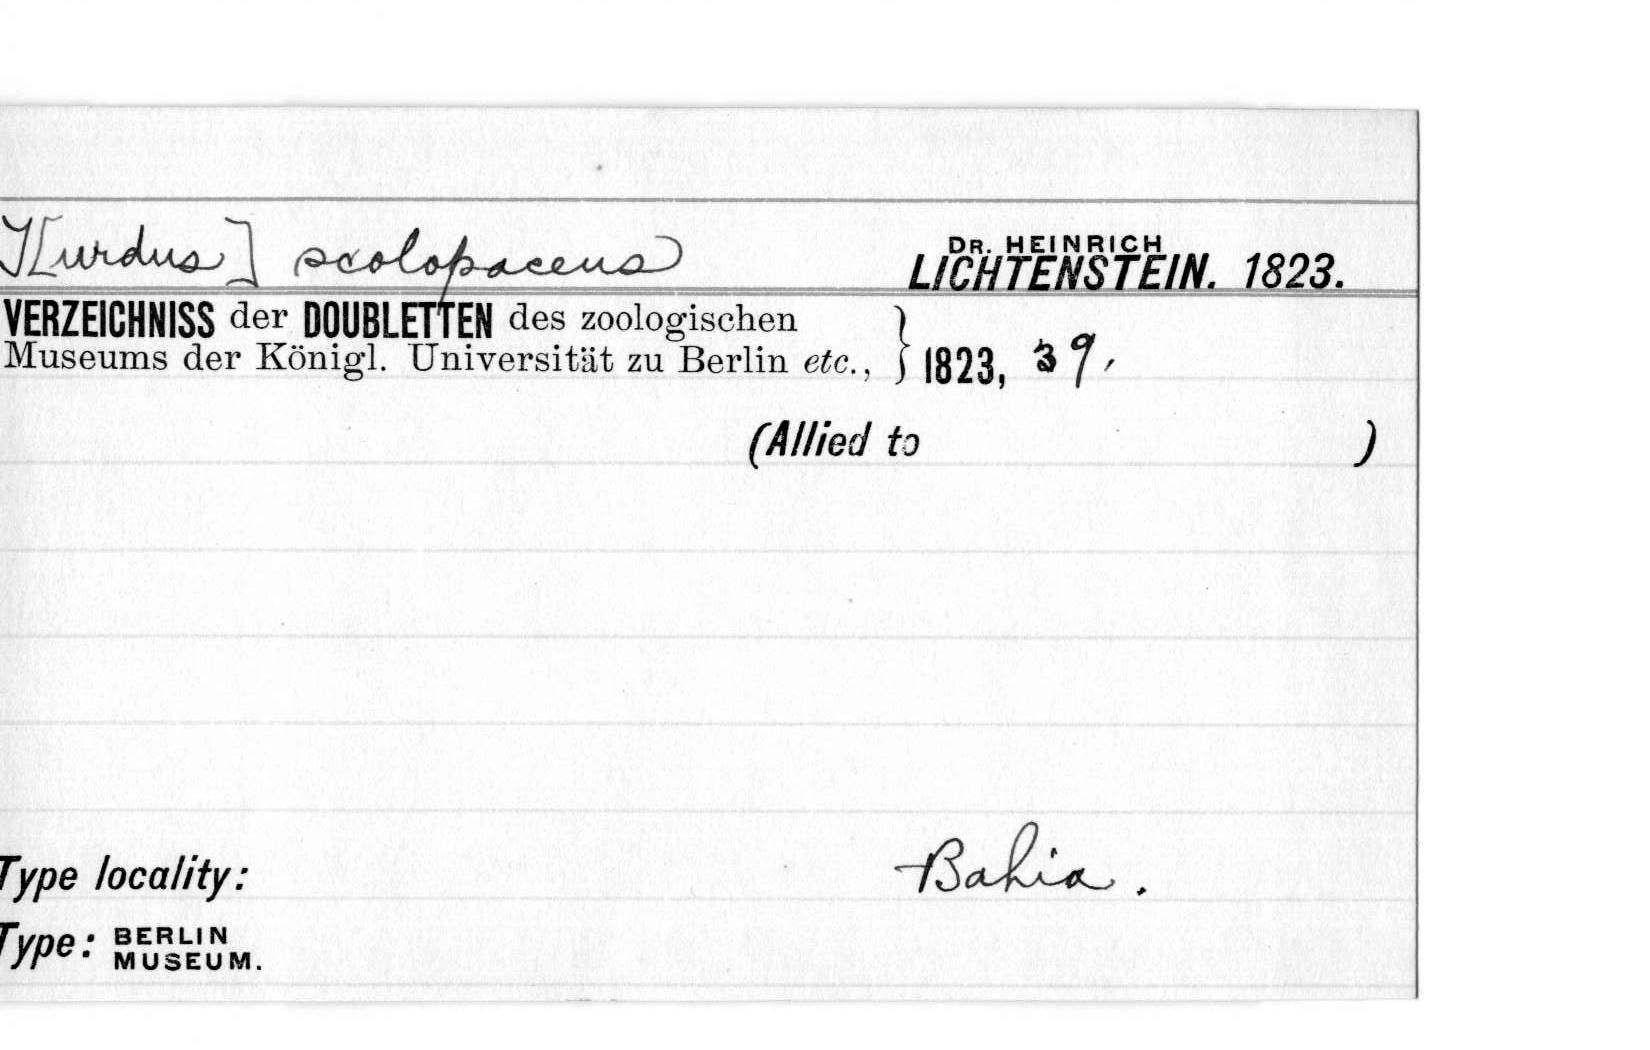 T[urdus] scolopaceus DR. HEINRICH
LICHTENSTEIN. 1823.
VERZEICHNISS der DOUBLETTEN des zoologischen
Museums der Königl. Universität zu Berlin etc., } 1823, 39.
(Allied to )
Type locality: Bahia.
Type: BERLIN
MUSEUM.